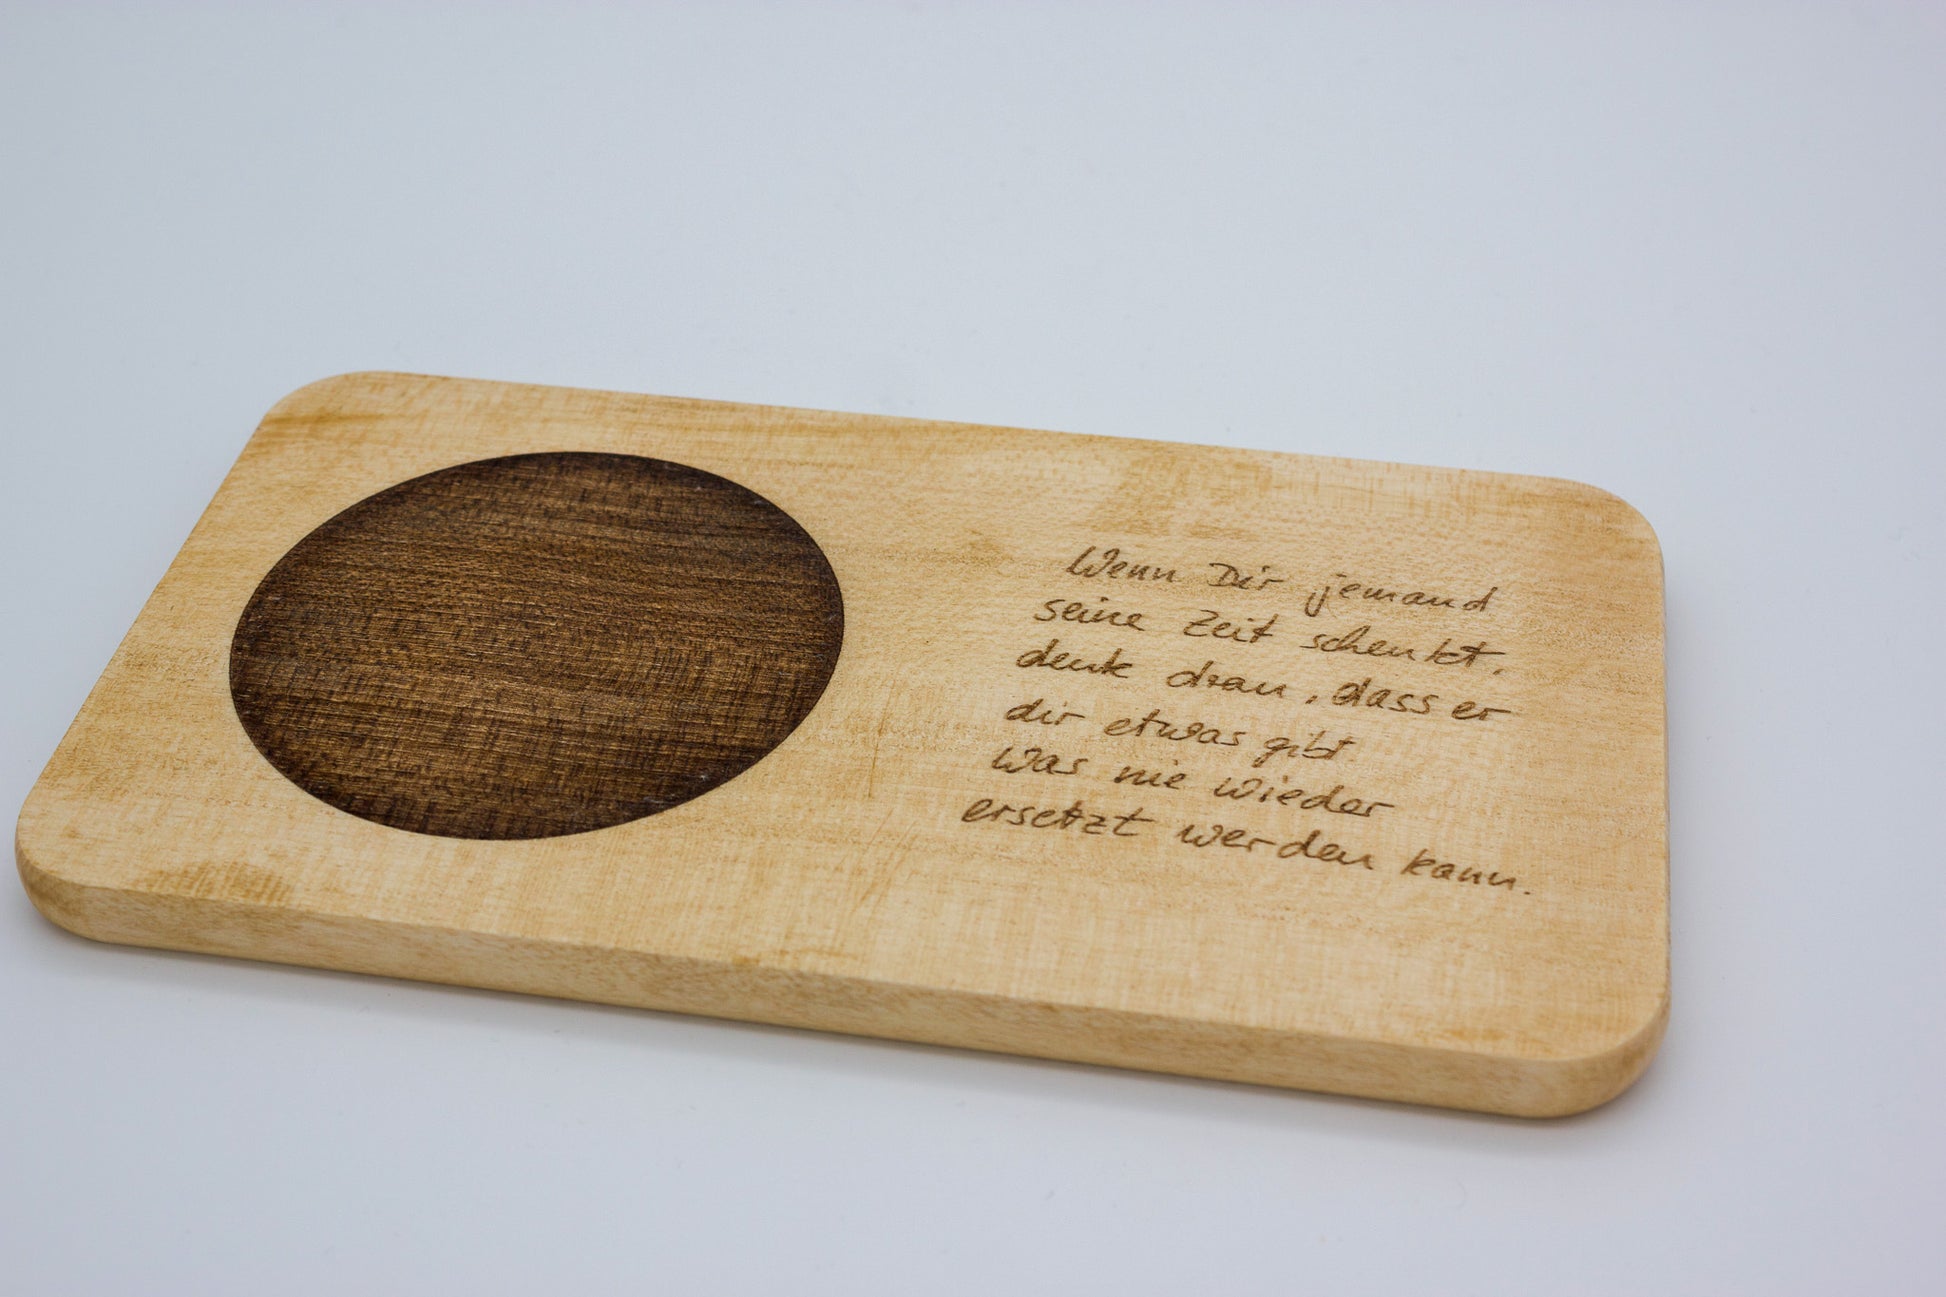 Wenn Dir jemand
seine Zeit schenkt,
denk dran, dass er
dir etwas gibt
Was nie wieder
ersetzt werden kann.